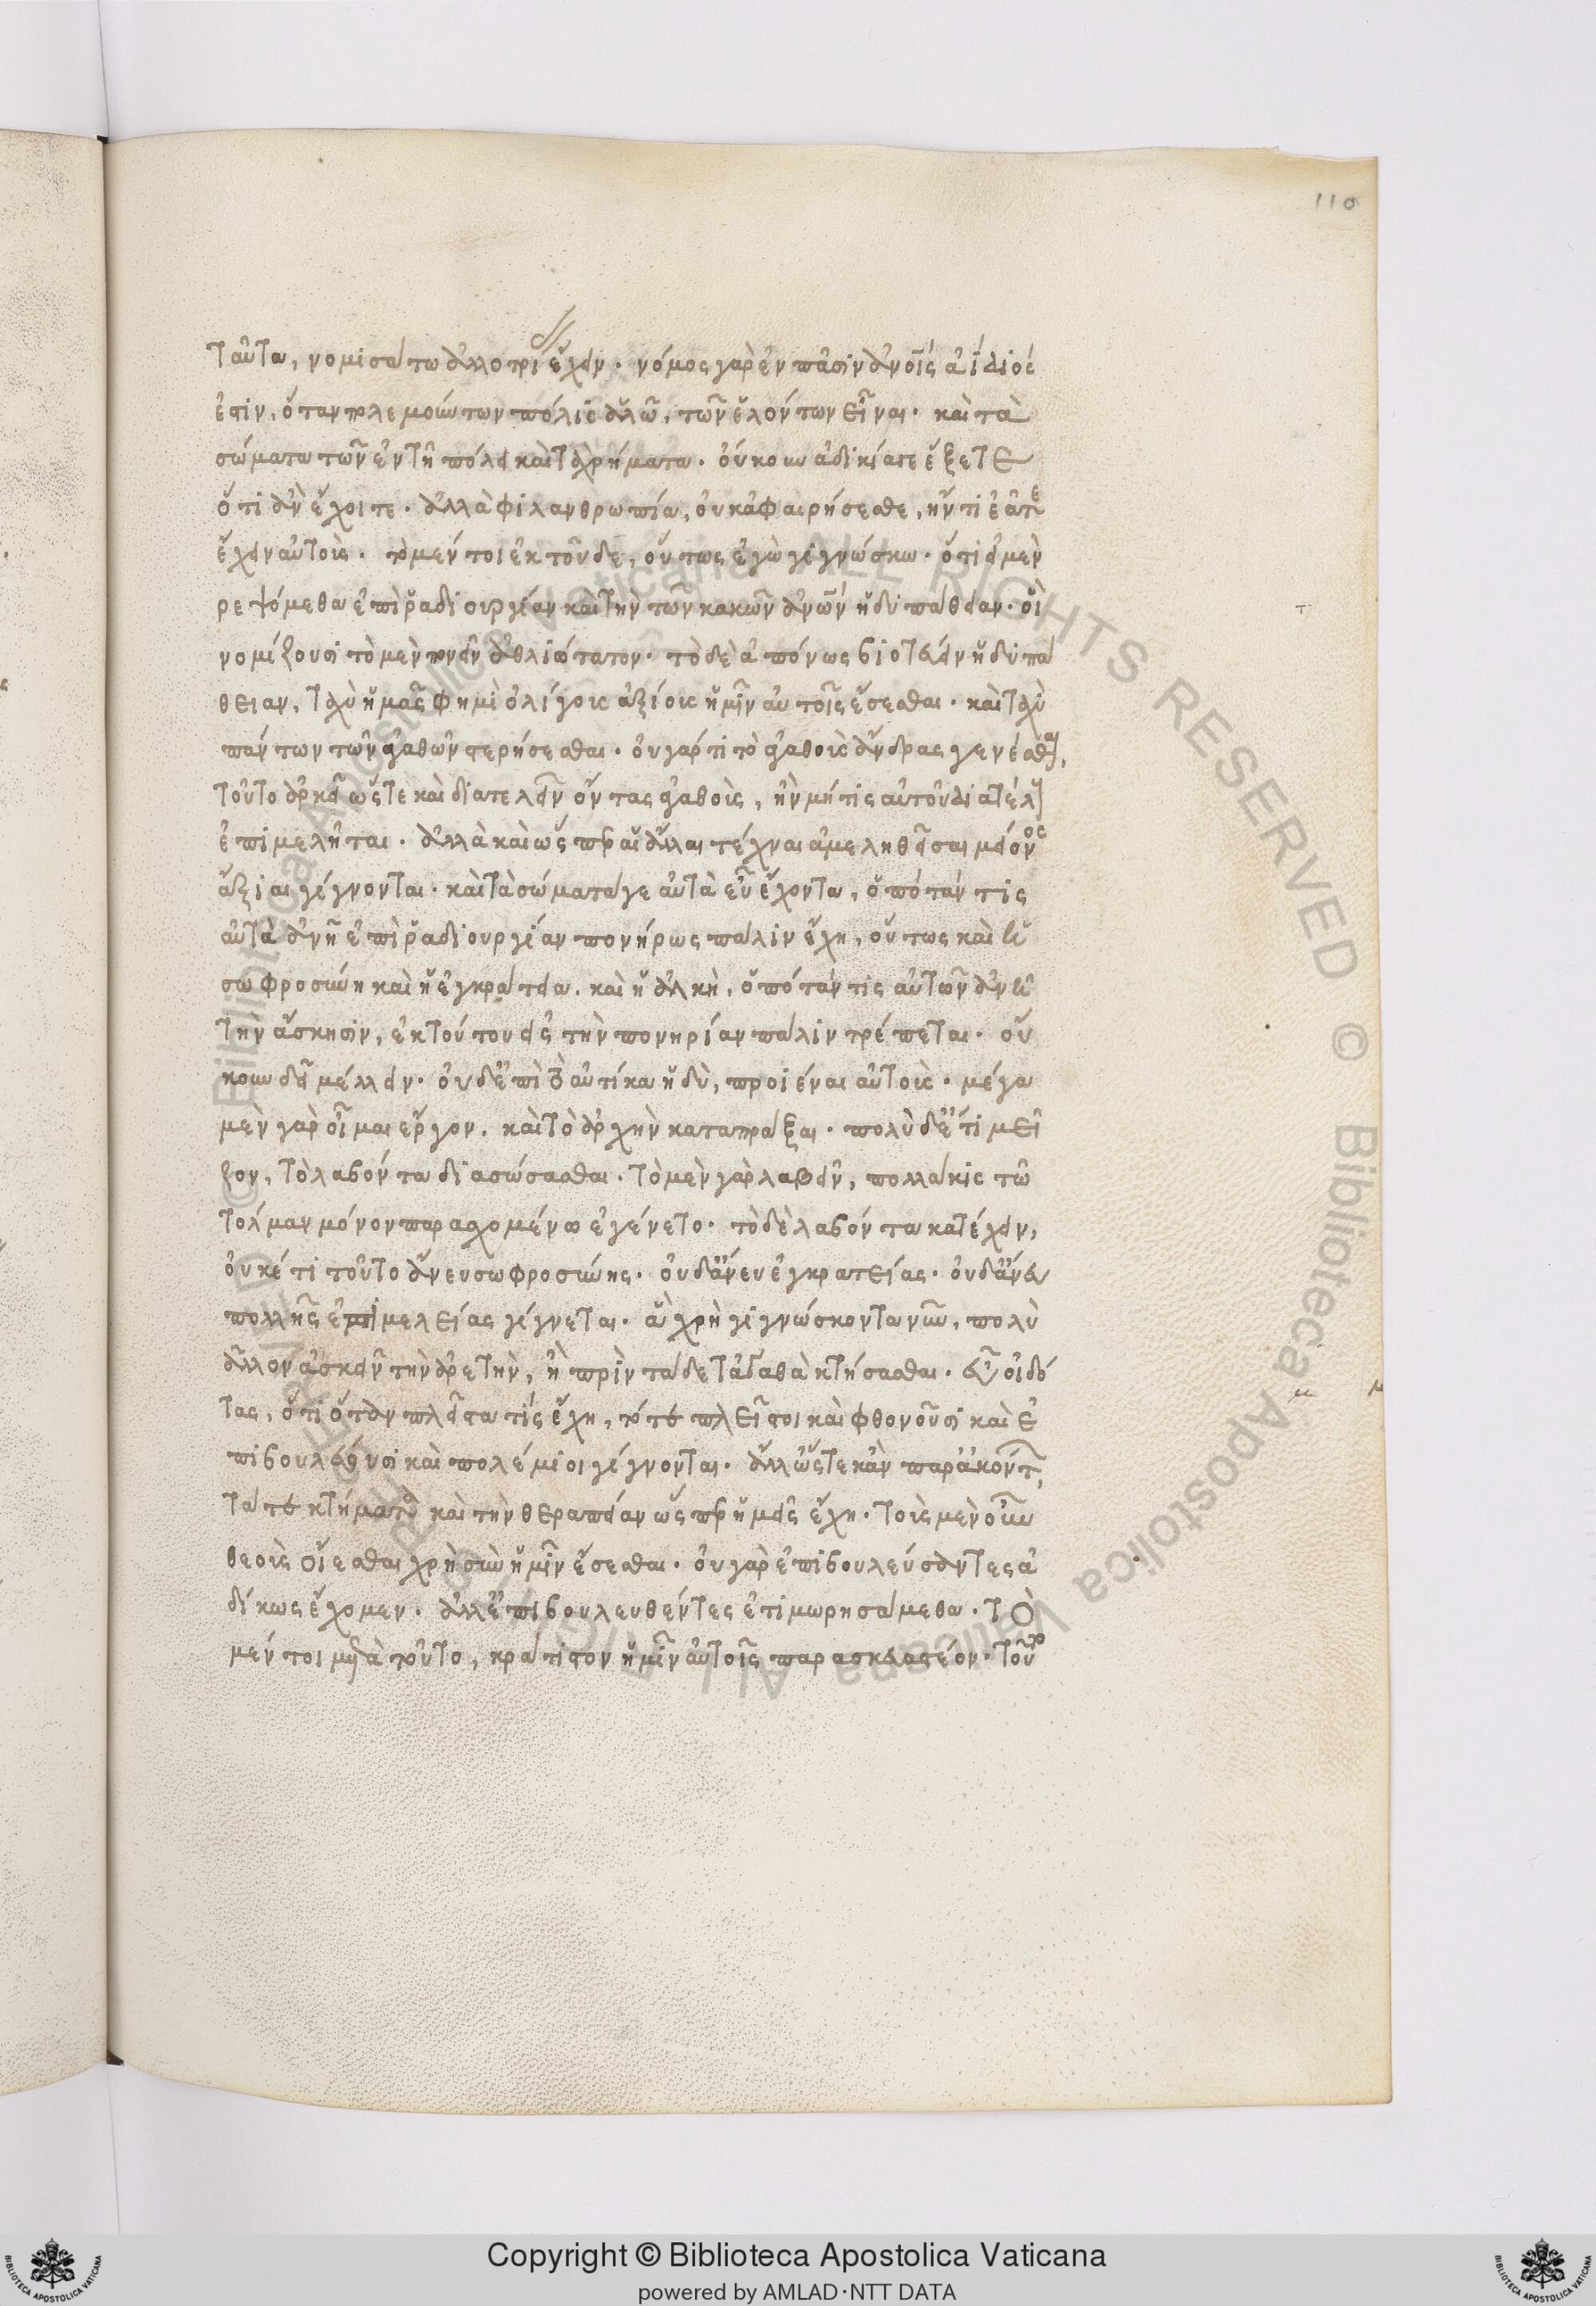 110
ταῦτα, νομισάτω ἀλλότρι ἔχειν· νόμος γὰρ ἐν πᾶσιν ἀνοῖς ἀΐδιός
ἐστιν, ὅταν πολεμούντων πόλις ἁλῶ, τῶν ἑλόντων εἶναι· καὶ τὰ
σώματα τῶν ἐν τῇ πόλει καὶ τὰ χρήματα. οὔκουν ἀδικία γε ἕξετε
ὅτι ἂν ἔχοιτε. ἀλλὰ φιλανθρωπία, οὐκ ἀφαιρήσεσθε, ἤν τι ἐᾶτε
ἔχειν αὐτοὺς. τὸ μέντοι ἐκ τοῦδε, οὕτως ἐγὼ γιγνώσκω· ὅτι εἰ μὲν
ρεψόμεθα ἐπὶ ῥαδιουργίαν καὶ τὴν τῶν κακῶν ἀνῶν ἡδυπάθειαν. οἳ
νομίζουσι τὸ μὲν πονεῖν ἀθλιώτατον. τὸ δὲ ἀπόνως βιοτεύειν ἡδυπά
θειαν, ταχὺ ἡμᾶς φημὶ ὀλίγοις ἀξίοις ἡμῖν αὐτοῖς ἔσεσθαι. καὶ ταχὺ
πάντων τῶν ἀγαθῶν στερήσεσθαι. οὐ γάρ τι τὸ ἀγαθοὺς ἄνδρας γενέσθαι,
τοῦτο ἀρκεῖ ὥστε καὶ διατελεῖν ὄντας ἀγαθοὺς, ἢν μή τις αὐτοῦ διατέλους
ἐπιμελῆται. ἀλλὰ καὶ ὥσπερ αἱ ἄλλαι τέχναι ἀμεληθεῖσαι μείονος
ἄξιαι γίγνονται. καὶ τὰ σώματά γε αὐτὰ εὖ ἔχοντα, ὁπόταν τις
αὐτὰ ἀνῇ ἐπὶ ῥαδιουργίαν πονήρως πάλιν ἔχη, οὕτως καὶ ἡ
σωφροσύνη καὶ ἡ ἐγκράτεια. καὶ ἡ ἀλκὴ, ὁπόταν τις αὐτῶν ἀνῇ
τὴν ἄσκησιν, ἐκ τούτου εἰς τὴν πονηρίαν πάλιν τρέπεται. οὔ
κουν δεῖ μέλλειν. οὐδ' ἐπὶ τὸ αὐτίκα ἡδὺ, προιέναι αὐτοὺς. μέγα
μὲν γὰρ οἶμαι ἔργον. καὶ τὸ ἀρχὴν καταπρᾶξαι. πολὺ δ' ἔτι μεῖ
ζον, τὸ λαβόντα διασώσασθαι. τὸ μὲν γὰρ λαβεῖν, πολλάκις τῶ
τόλμαν μόνον παρασχομένω ἐγένετο. τὸ δὲ λαβόντα κατέχειν,
οὐκέτι τοῦτο ἄνευ σωφροσύνης. οὐδ' ἄνευ ἐγκρατείας. οὐδ' ἄνευ
πολλῆς ἐπιμελείας γίγνεται. ἃ χρὴ γιγνώσκοντα νῦν, πολὺ
ἆλλον ἀσκεῖν τὴν ἀρετὴν, ἢ πρὶν τάδε τἀγαθὰ κτήσασθαι. εὖ οἰδό
τας, ὅτι ὅταν πλεῖστά τις ἔχη, τότε πλεῖστοι καὶ φθονοῦσι καὶ ἐ
πιβουλεύουσι καὶ πολέμιοι γίγνονται. ἄλλως τε κἂν παρ' ἀκόντων
τά τε κτήματα καὶ τὴν θεραπείαν ὥσπερ ἡμεῖς ἔχη. τοὺς μὲν οὖν
θεοὺς οἴεσθαι χρὴ σὺν ἡμῖν ἔσεσθαι. οὐ γὰρ ἐπιβουλεύσαντες ἀ
δίκως ἔχομεν. ἀλλ' ἐπιβουλευθέντες ἐτιμωρησάμεθα. τὸ
μέντοι μετὰ τοῦτο, κράτιστον ἡμῖν αὐτοῖς παρασκευαστέον. τοῦτο
© Biblioteca Apostolica Vaticana ALL RIGHTS RESERVED
Copyright © Biblioteca Apostolica Vaticana
powered by AMLAD·NTT DATA
BIBLIOTECA APOSTOLICA VATICANA
BIBLIOTECA APOSTOLICA VATICANA